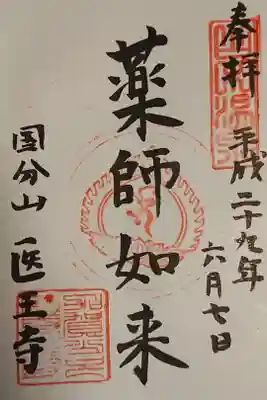 奉拝
平成二十九年
六月七日
薬師如来
国分山
医王寺